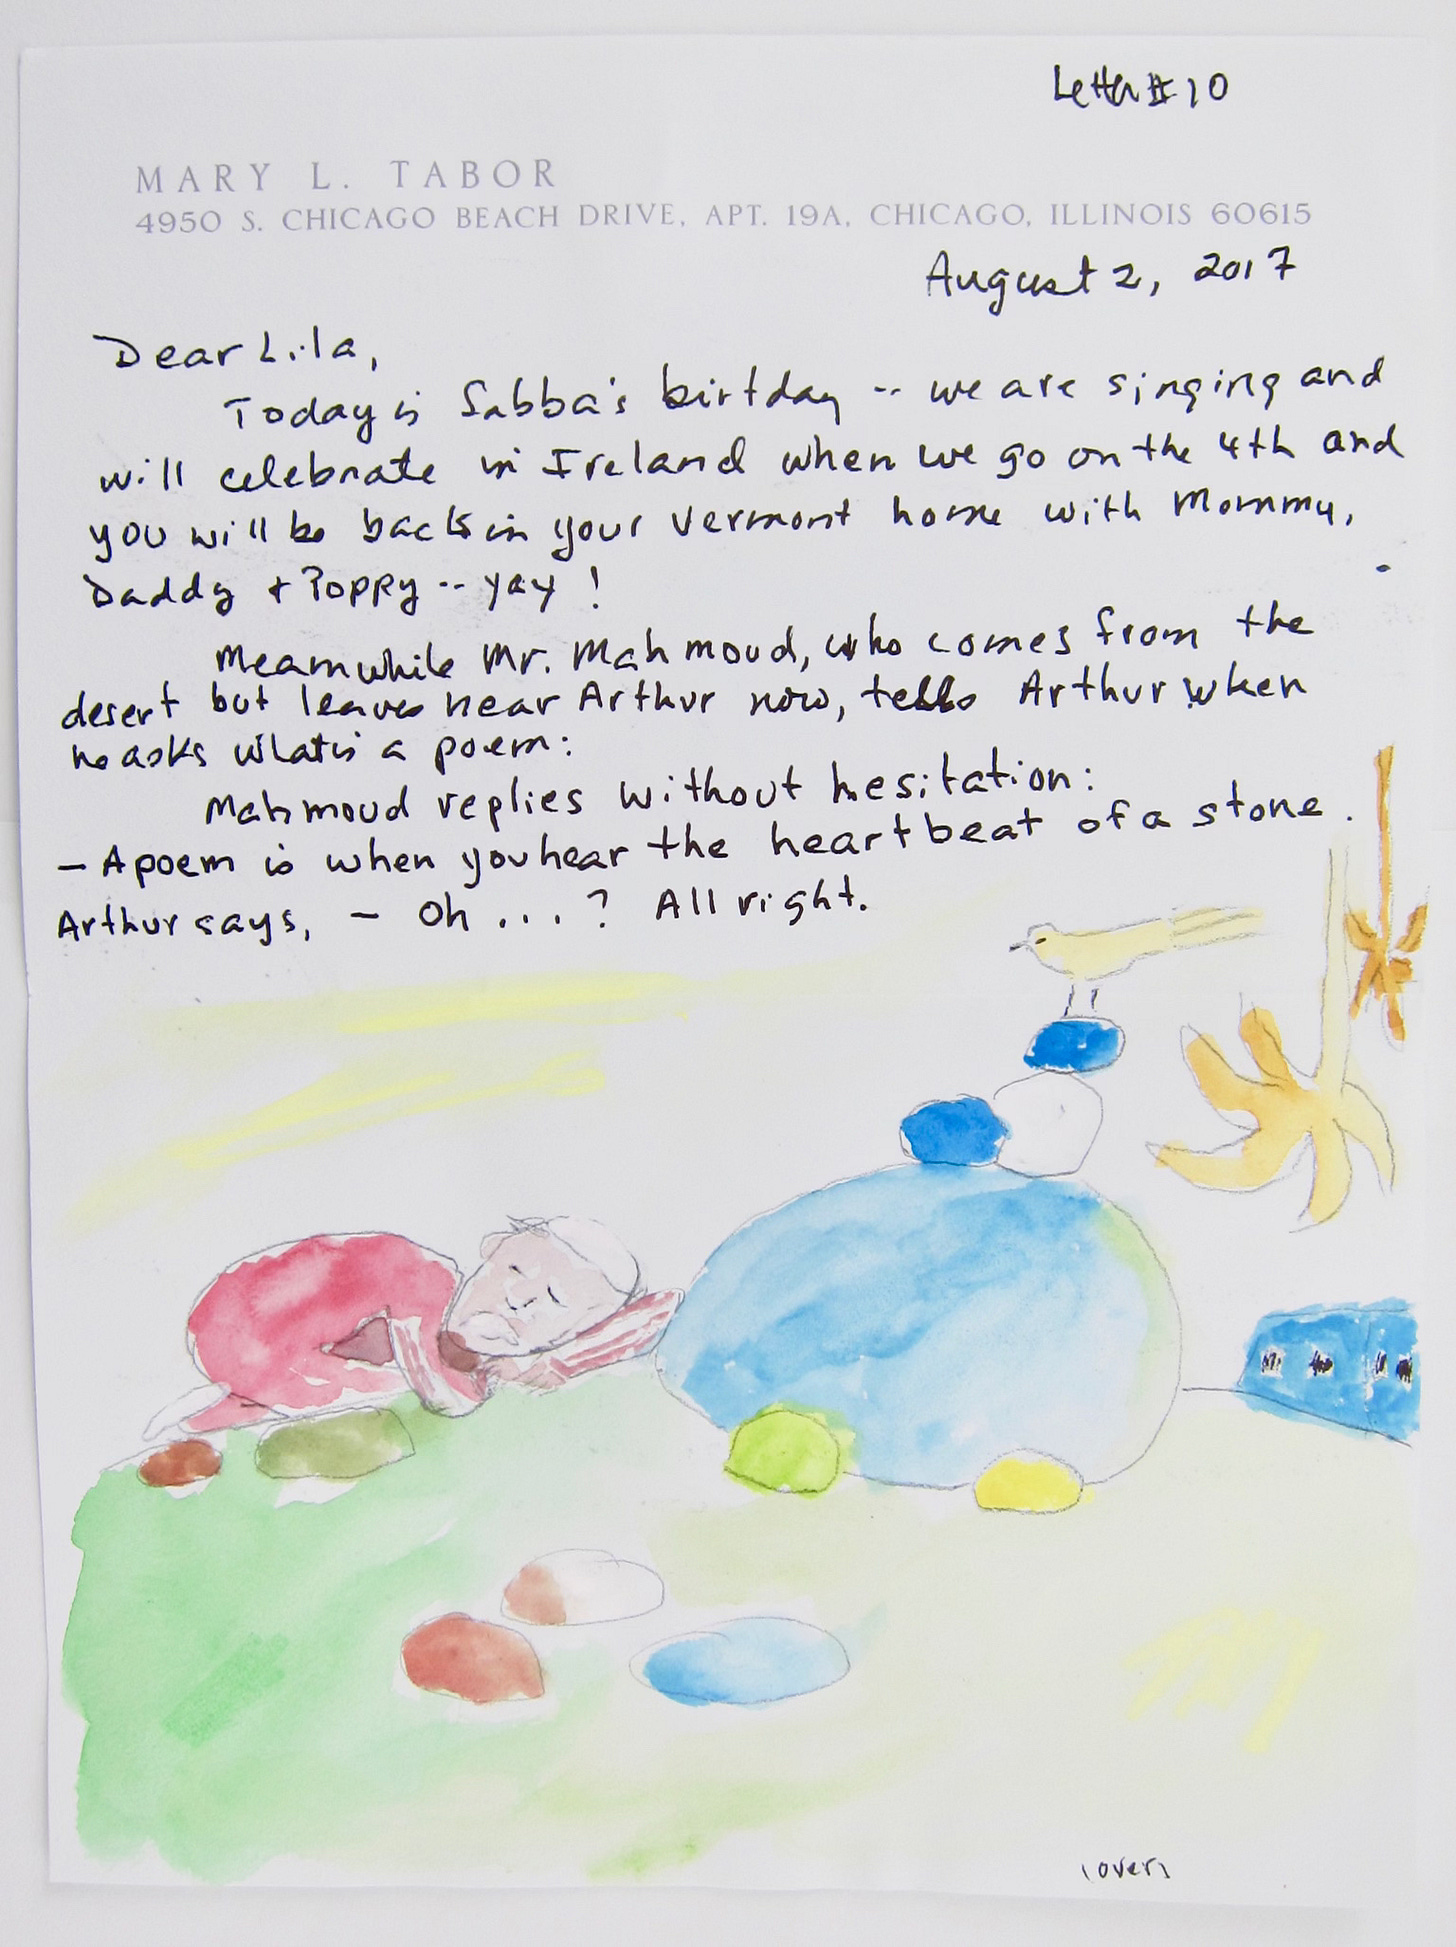 Letter #10
MARY L. TABOR
4950 S. CHICAGO BEACH DRIVE, APT. 19A, CHICAGO, ILLINOIS 60615
August 2, 2017
Dear Lila,
Today is Sabba's birtday -- we are singing and
will celebrate in Ireland when we go on the 4th and
you will be back in your Vermont home with Mommy,
Daddy + Poppy -- yay!
Meanwhile Mr. Mahmoud, who comes from the
desert but leaves near Arthur now, tells Arthur when
he asks what is a poem:
Mahmoud replies without hesitation:
— A poem is when you hear the heartbeat of a stone.
Arthur says, — Oh . . . ? All right.
(over)